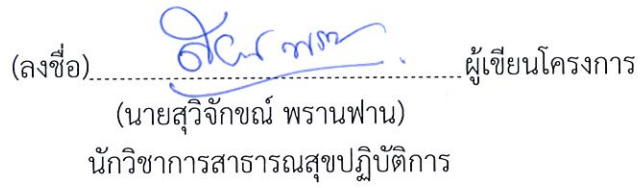 (ลงชื่อ)........................................................ผู้เขียนโครงการ
(นายสุวิจักขณ์ พรานฟาน)
นักวิชาการสาธารณสุขปฏิบัติการ